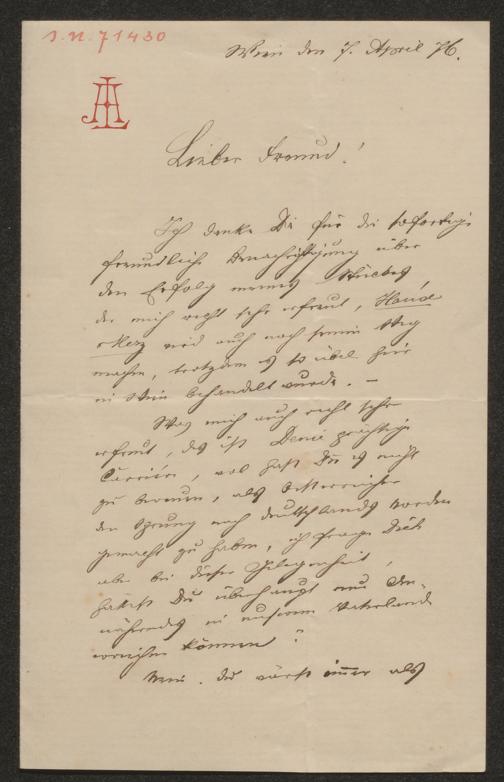 J.N. 71430
Wien den 7. April 76.
Lieber Freund!
Ich danke Dir für die sofortige
freundliche Benachrichtigung über
den Erfolg meines Stückes
der mich recht sehr erfreut,
Herz wird auch noch seinen Weg
machen, trotzdem es so übel hier
in Wien behandelt wurde. —
Was mich auch recht sehr
erfreut, das ist Deine prächtige
Carrière, wol hast Du es nicht
zu bereuen, als Oesterreicher
den Sprung nach Deutschland
gemacht zu haben, ich frage Dich
aber bei dieser Gelegenheit,
hättest Du überhaupt nur An-
näherndes in unserem Vaterland
erreichen können?
Nein. Du wärst immer als